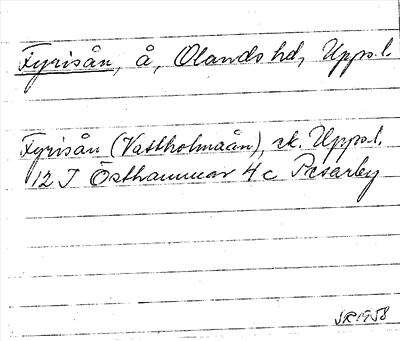 Fyrisån, å, Olands hd, Upps. l.
Fyrisån (Vattholmaån), rk. Upps. l.
12 I Östhammar 4 c Pesarby
SR 1958